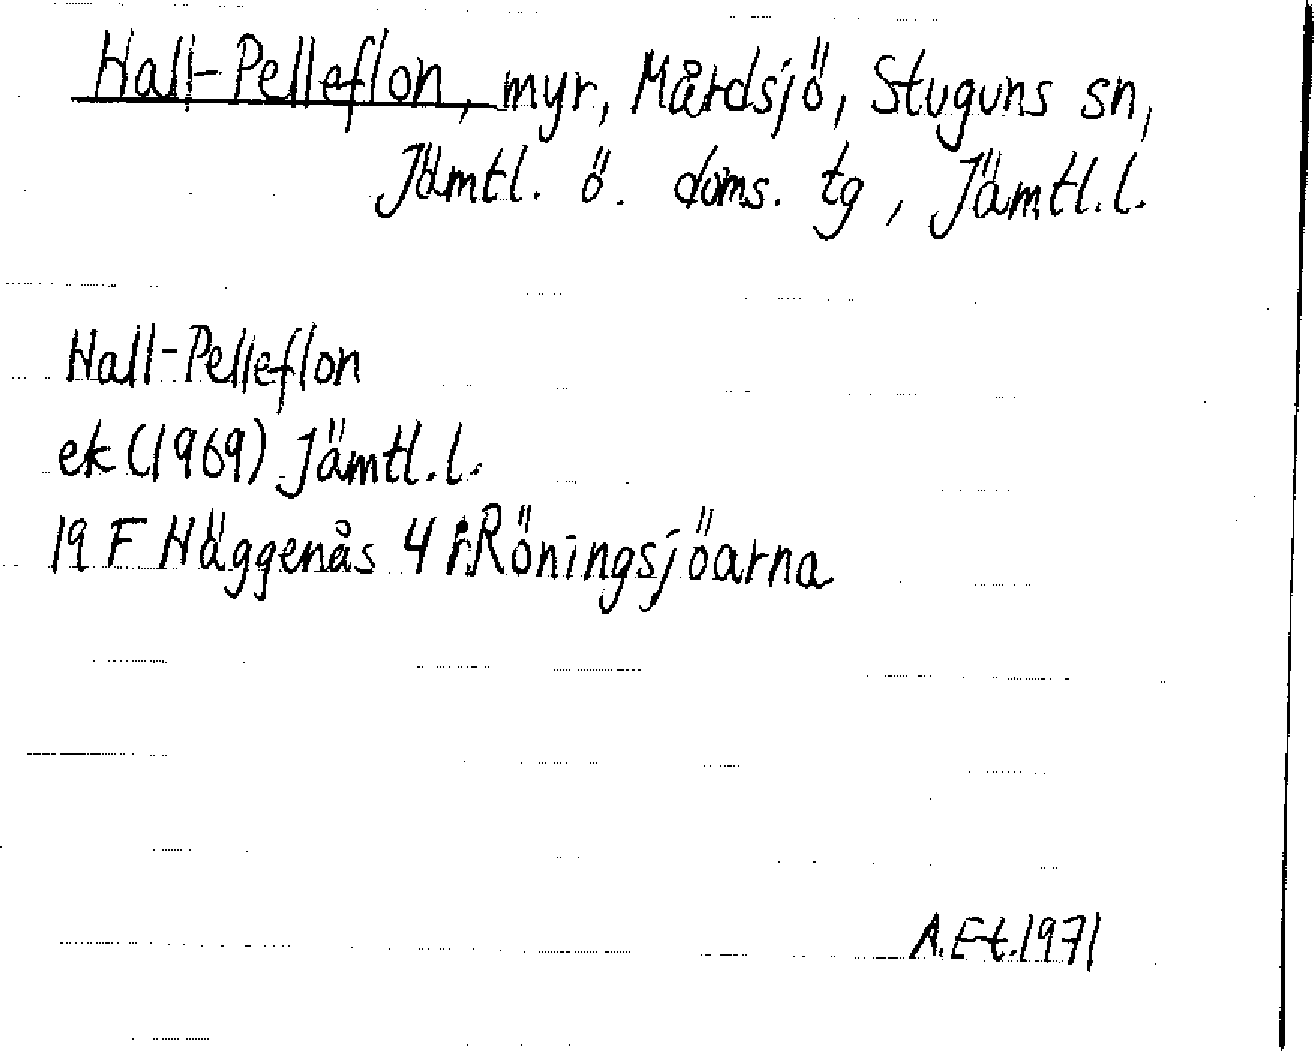 Hall-Pelleflon, myr, Mårdsjö, Stuguns sn,
Jämtl. ö. doms. tg, Jämtl.l.
Hall-Pelleflon
ek (1969) Jämtl.l.
19 F Häggenås 4 i Röningsjöarna
A.Et.1971